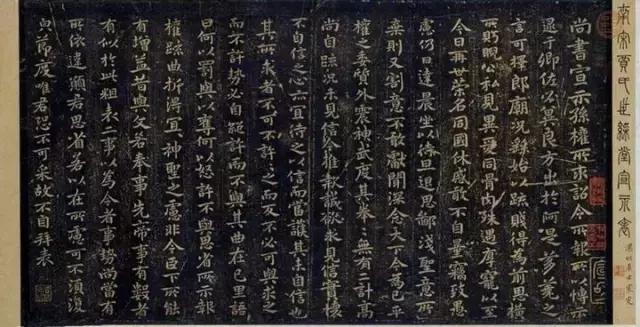 南宋賈氏世綵堂宣示表
尚書宣示孫權所求詔令所報所以博示
逮于卿佐必冀良方出於阿是芻蕘之
言可擇郎廟況繇始以疏賤得為前恩橫
所盱睨公私見異愛同骨肉殊遇厚寵以至
今日再世榮名同國休慼敢不自量竊致愚
慮仍日達晨坐以待旦退思鄙淺聖意所
棄則又割意不敢獻聞深念天下今為已平
權之委質外震神武度其拳拳無有二計高
尚自疏況未見信今推款誠欲求見信實懷
不自信之心亦宜待之以信而當護其未自信也
其所求者不可不許許之而反不必可與求之
而不許勢必自絕許而不與其曲在己里語
曰何以罰與以奪何以怒許不與思省所示報
權疏曲折得宜宜神聖之慮非今臣下所能
有增益昔與文若奉事先帝事有數者
有似於此粗表二事以為今者事勢尚當有
所依違願君思省若以在所慮可不須復
節度唯君恐不可采故不自拜表